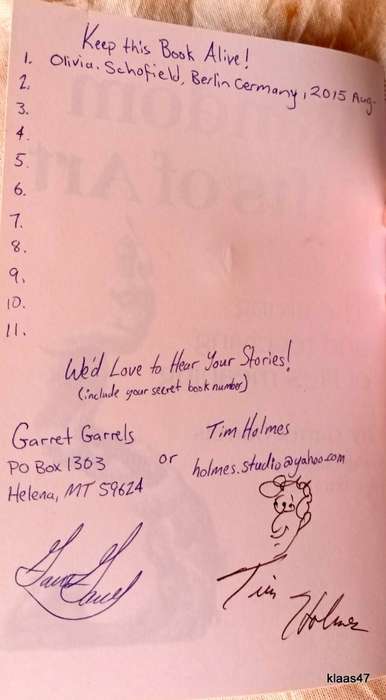 Keep this Book Alive!
1. Olivia. Schofield, Berlin Germany, 2015 Aug.
2.
3.
4.
5.
6.
7.
8.
9.
10.
11.
We'd Love to Hear Your Stories!
(include your secret book number)
Garret Garrels
PO Box 1303
Helena, MT 59624
or
Tim Holmes
holmes.studio@yahoo.com
Tim Holmes
klaas47